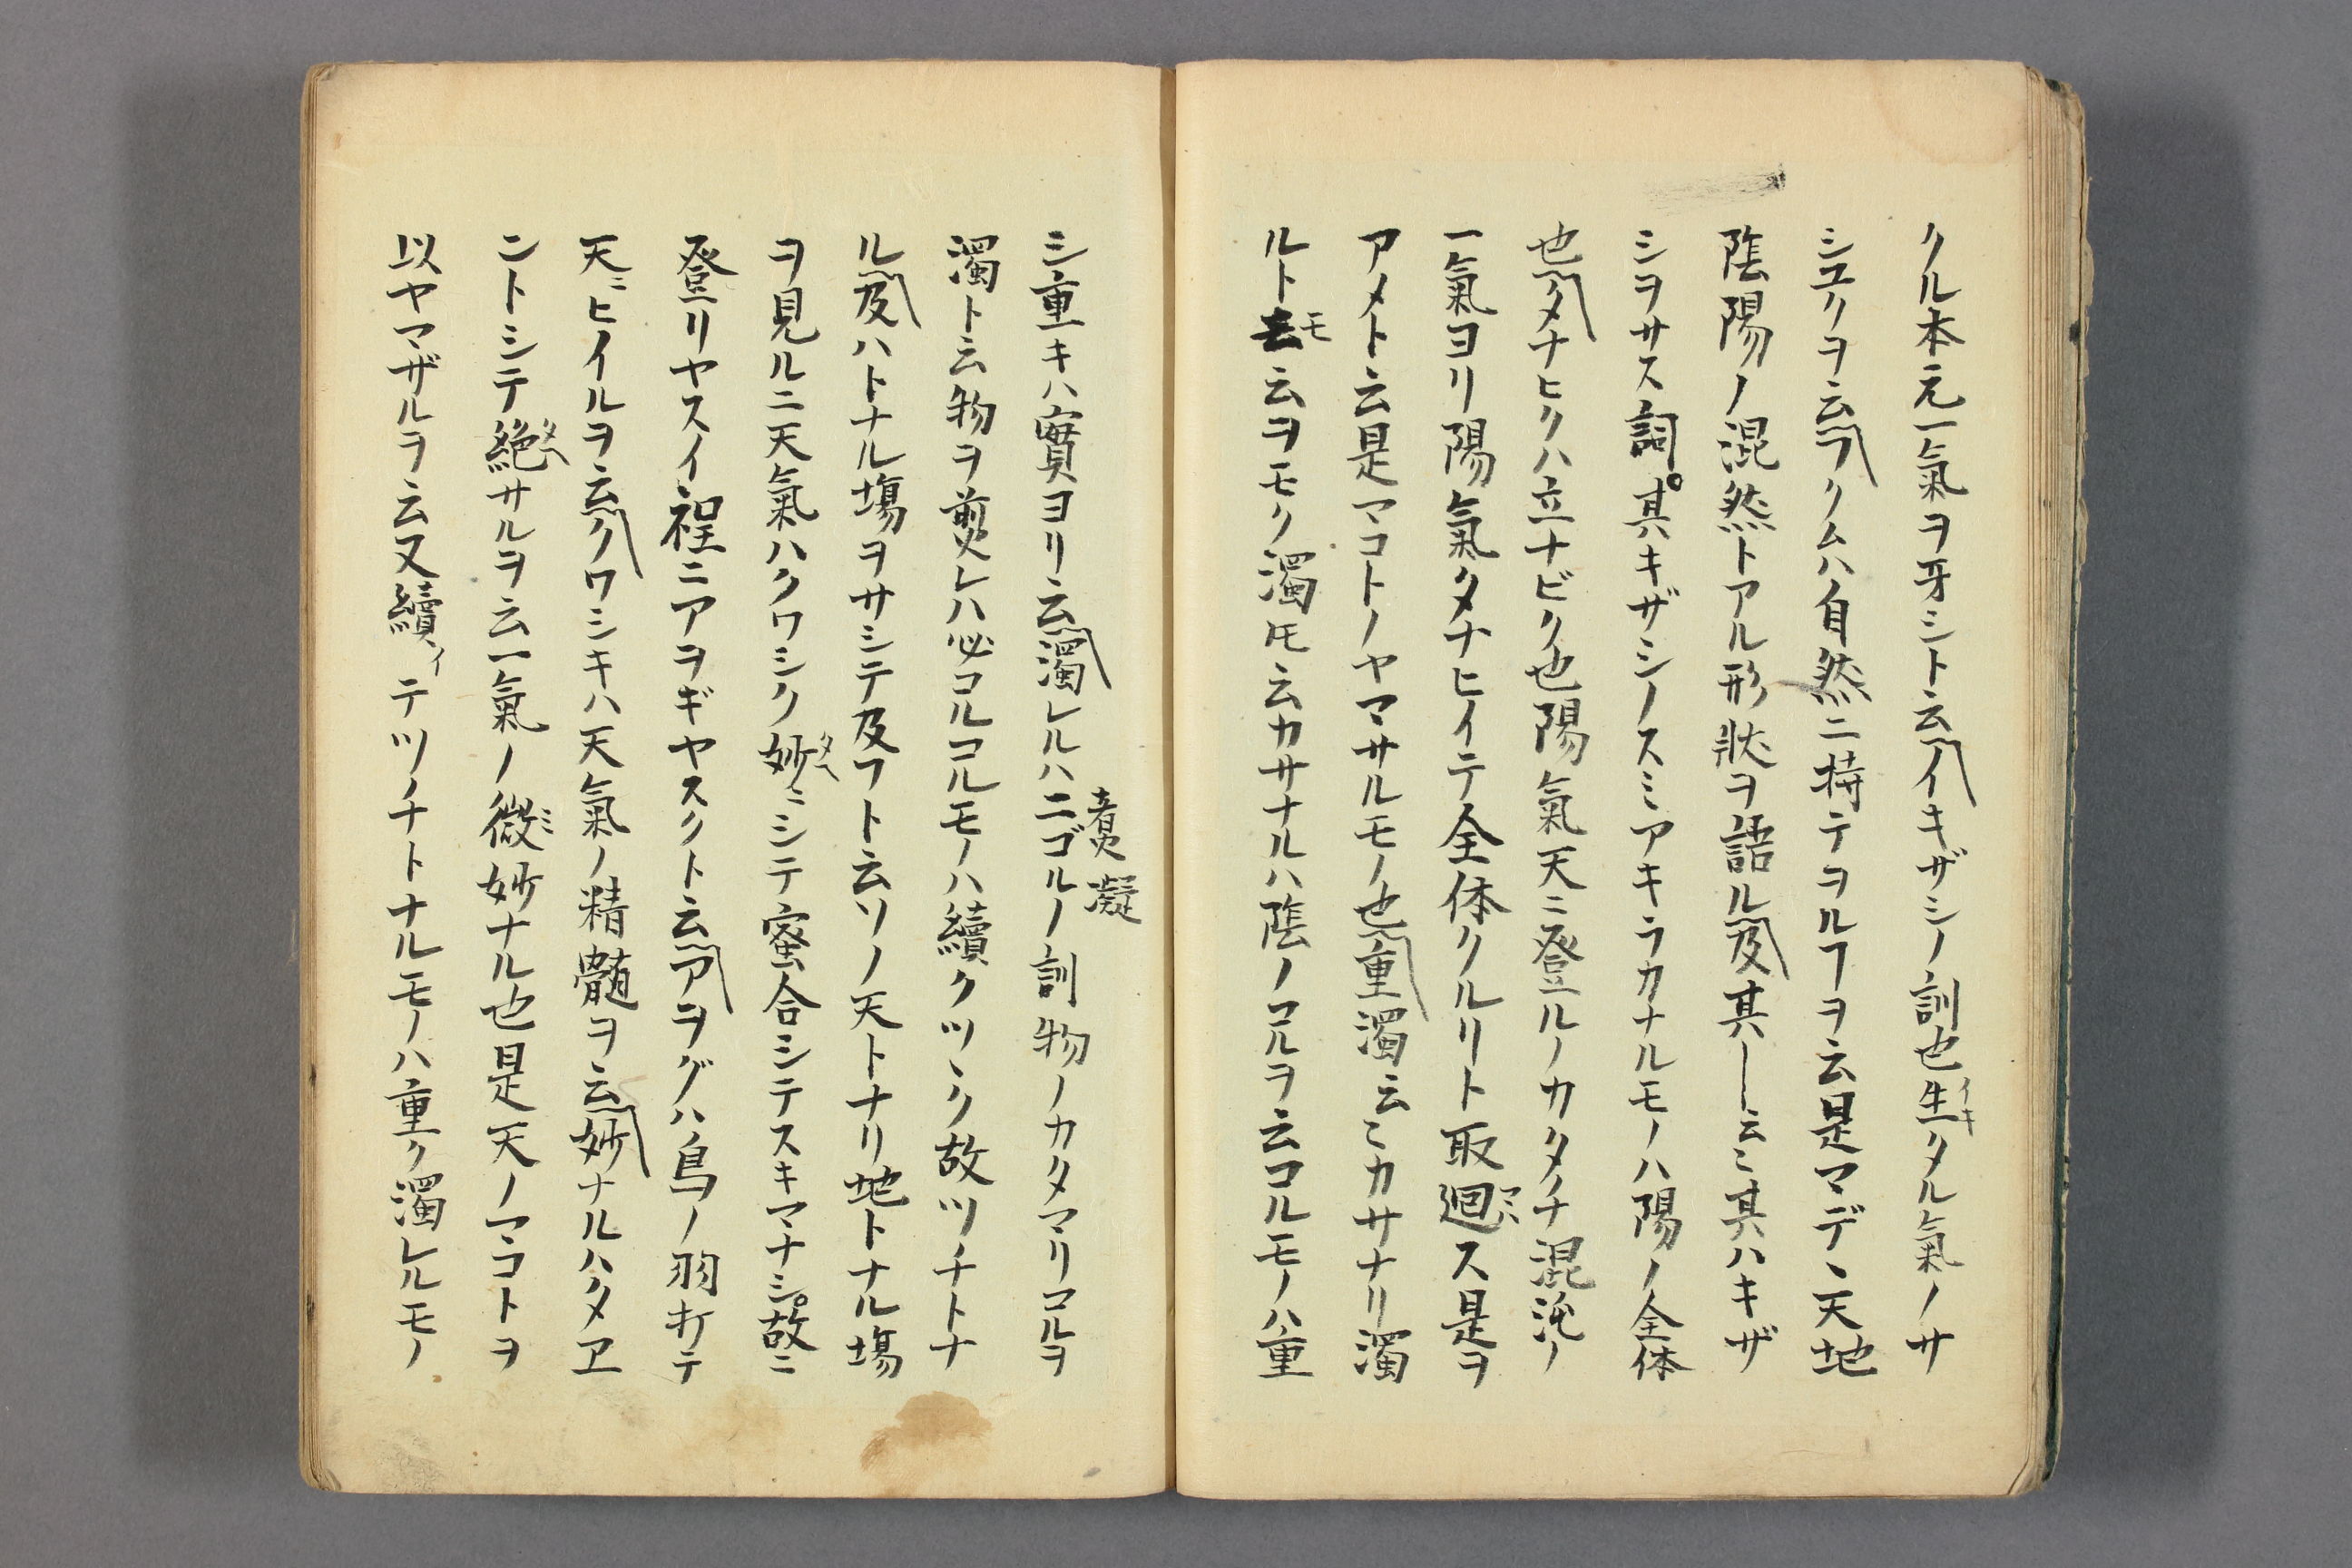 クル本元一氣ヲ牙シト云〽イキザシノ訓也生イキタル氣ノサ
シユクヲ云〽フクムハ自然ニ持テヲルヿヲ云是マデヽ天地
陰陽ノ混然トアル形狀ヲ語ル〽及其―云ミ其ハキザ
シヲサス詞其キザシノスミアキラカナルモノハ陽ノ全体
也〽タナヒクハ立ナビク也陽氣天ニ登ルノカタチ混沌ノ
一氣ヨリ陽氣タナヒイテ全体クルリト取廻マハス是ヲ
アメト云是マコトノヤマサルモノ也〽重濁云ミカサナリ濁
ルトモ云ヲモク濁ルモ云カサナルハ陰ノコルヲ云コルモノハ重
シ重キハ實ヨリ云〽濁レルハニゴルノ訓物ノカタマリコルヲ
煑凝
濁ト云物ヲ煎レハ必コルコルモノハ續クツヽク故ツチトナ
ル〽及ハトナル塲ヲサシテ及フト云ソノ天トナリ地トナル塲
ヲ見ルニ天氣ハクワシク妙タヘニシテ蜜合シテスキマナシ故ニ
登リヤスイ程ニアヲギヤスクト云〽アヲグハ鳥ノ羽打テ
天ニヒイルヲ云〽クワシキハ天氣ノ精髓ヲ云〽妙ナルハタヱ
ントシテ絶タヘサルヲ云一氣ノ微ミ妙ナル也是天ノマコトヲ
以ヤマザルヲ云又續イテツチトナルモノハ重ク濁レルモノ